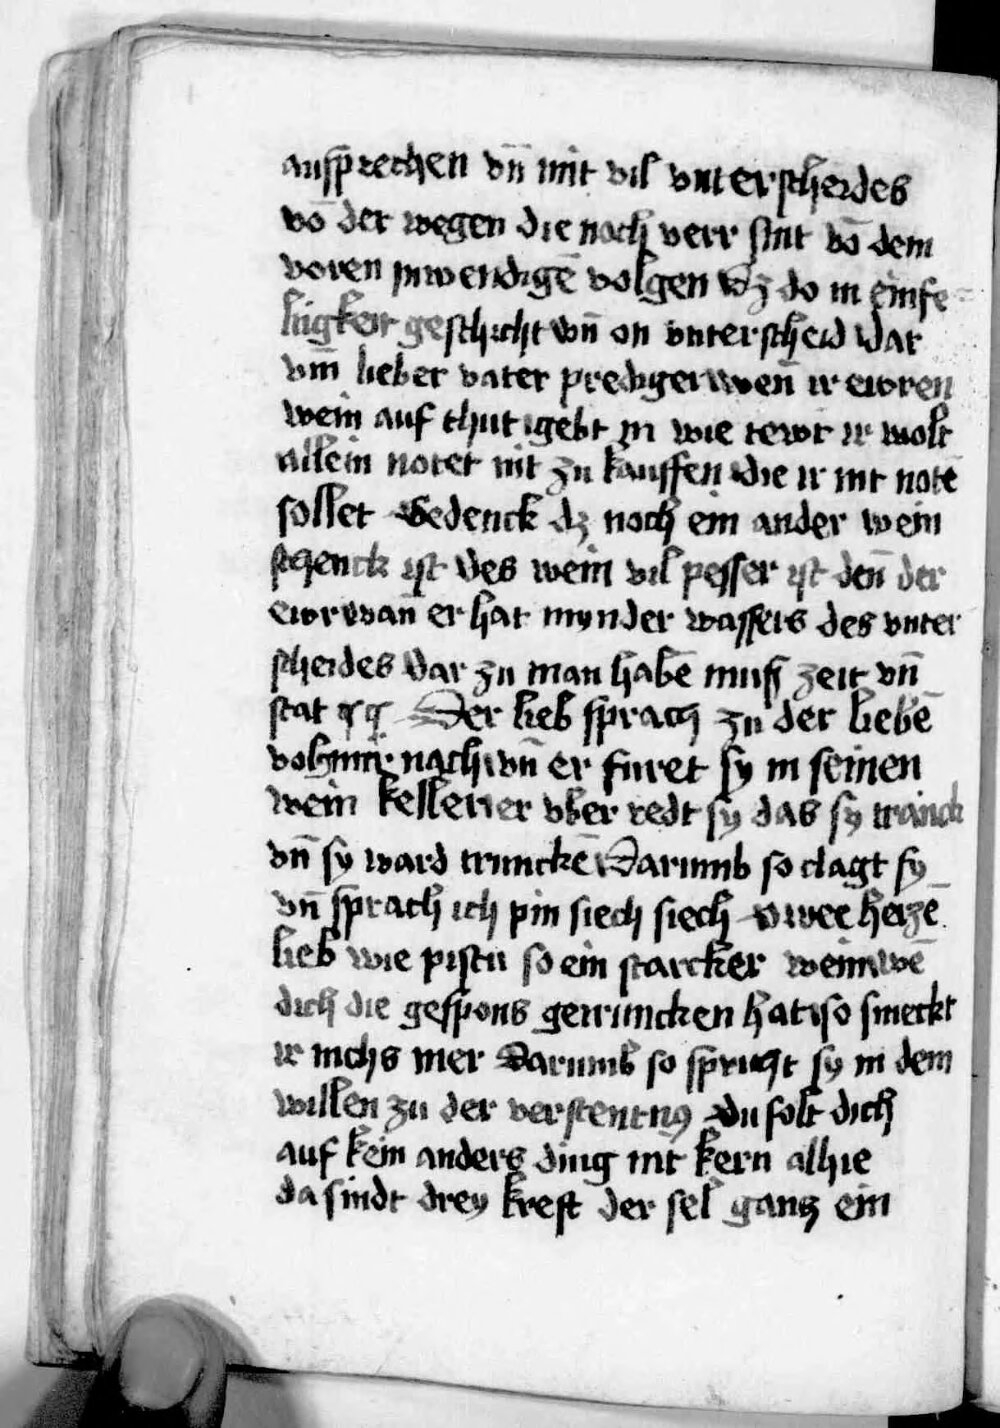 aussprechen vn̄ mit vil vnterscheides
vō der wegen die noch verr sint vō dem
voren inwendigē volgen dz do in einfe
ltigkeit geschicht vn̄ on vnterscheid dar
vm̄ lieber vater prediger wen̄ ir ewren
wein auf thut gebt in wie tewr ir wolt
allein notet nit zu kauffen die ir nit notē
sollet Gedenck dz noch ein ander wein
schenck ist des wein vil pesser ist den̄ der
ewr wan̄ er hat mynder wassers des vnter
scheides dar zu man habē muss zeit vn̄
stat Der lieb sprach zu der liebē
volg mir nach vn̄ er furet sy in seinen
wein keller er vber redt sy das sy tranck
vn̄ sy ward trunckē Darumb so clagt sy
vn̄ sprach ich pin siech siech O wee herzē
lieb wie pistu so ein starcker wein wē
dich die gespons getruncken hat so smeckt
ir nichs mer Darumb so spricht sy in dem
willen zu der verstentnus du solt dich
auf kein anders ding nit kern alhie
da sindt drey kreft der sel gantz ein